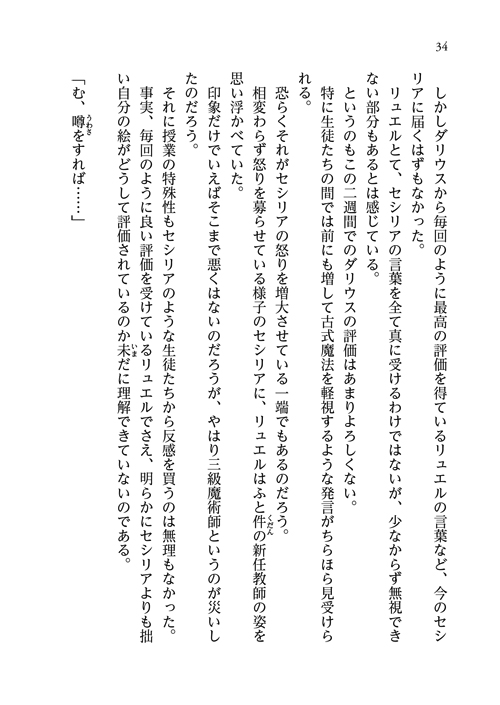 34
しかしダリウスから毎回のように最高の評価を得ているリュエルの言葉など、今のセシ
リアに届くはずもなかった。
リュエルとて、セシリアの言葉を全て真に受けるわけではないが、少なからず無視でき
ない部分もあるとは感じている。
というのもこの二週間でのダリウスの評価はあまりよろしくない。
特に生徒たちの間では前にも増して古式魔法を軽視するような発言がちらほら見受けら
れる。
恐らくそれがセシリアの怒りを増大させている一端でもあるのだろう。
相変わらず怒りを募らせている様子のセシリアに、リュエルはふと件くだんの新任教師の姿を
思い浮かべていた。
印象だけでいえばそこまで悪くはないのだろうが、やはり三級魔術師というのが災いし
たのだろう。
それに授業の特殊性もセシリアのような生徒たちから反感を買うのは無理もなかった。
事実、毎回のように良い評価を受けているリュエルでさえ、明らかにセシリアよりも拙
い自分の絵がどうして評価されているのか未いまだに理解できていないのである。
「む、噂うわさをすれば……」